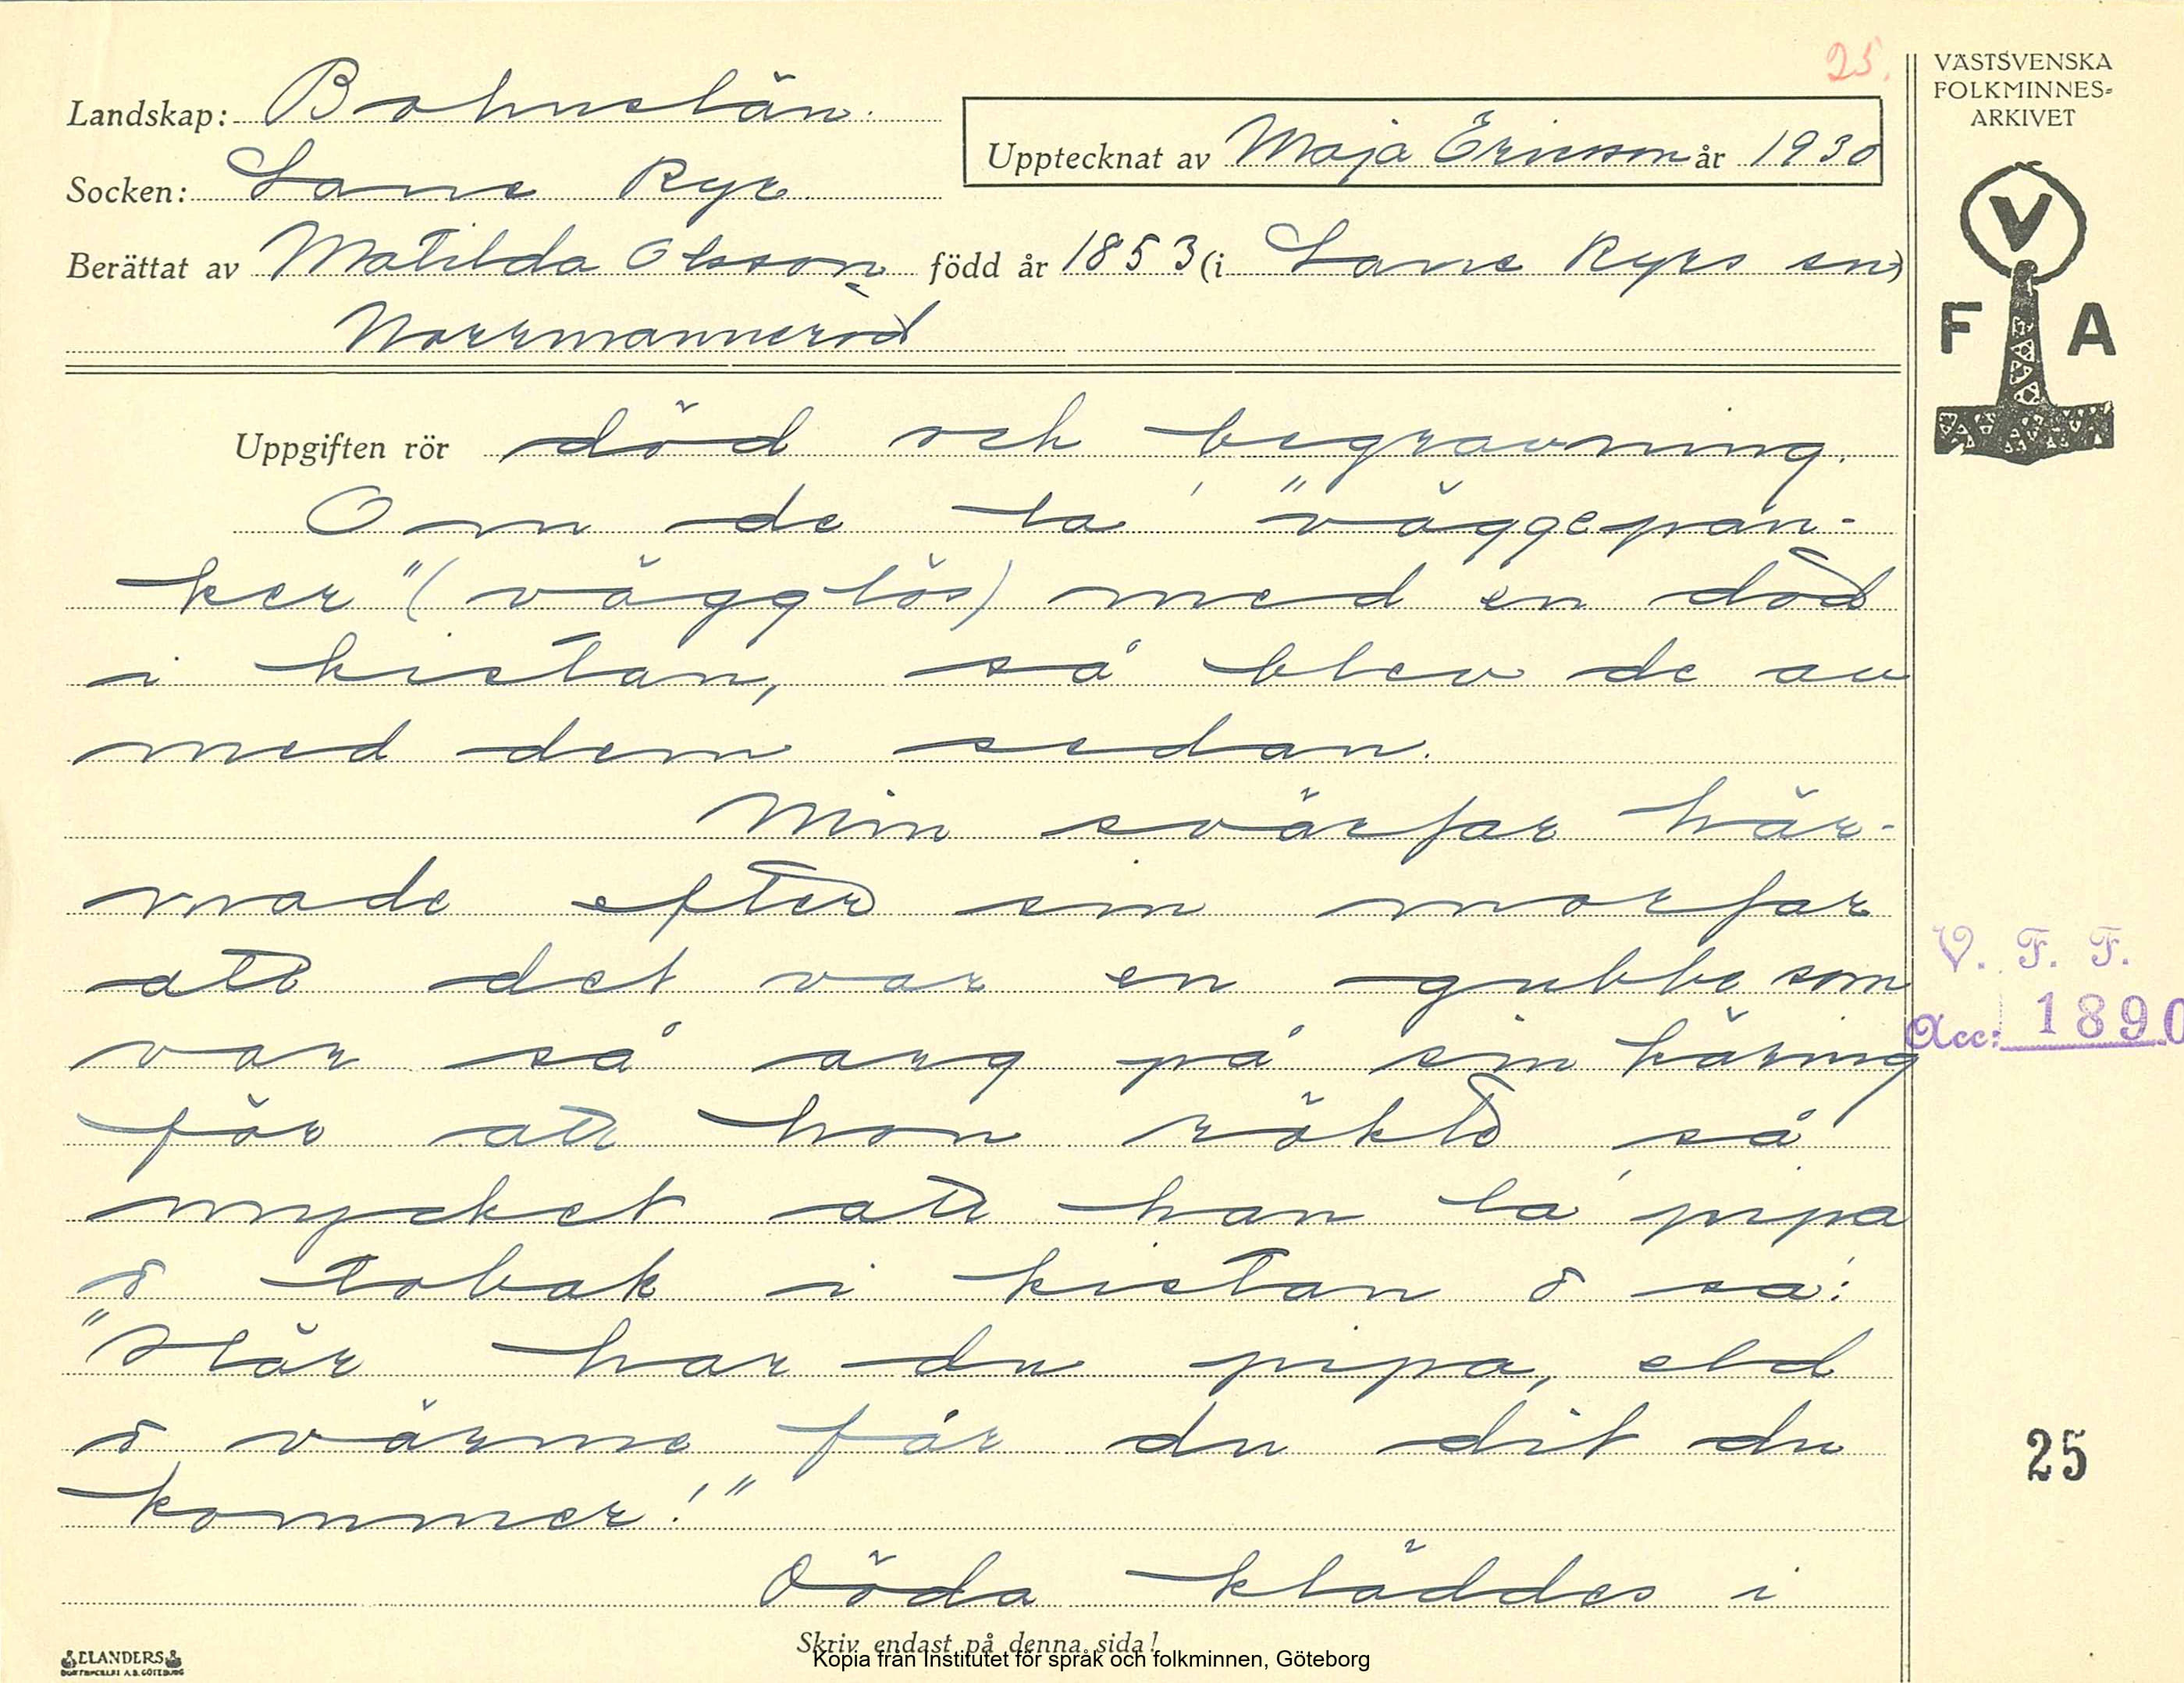 25.
Landskap: Bohuslän.
Upptecknat av Maja Ericsson år 1930
Socken: Lane Ryr
Berättat av Matilda Olsson född år 1853 (i Lane Ryrs sn)
Norrmanneröd
Uppgiften rör död och begravning.
Om de la' "väggepan-
ker" (vägglös) med en död
i kistan, så blev de av
med dem sedan.
Min svärfar här-
made efter sin morfar
att det var en gubbe som
var så arg på sin käring
för att hon rökte så
mycket att han la' pipa
ô tobak i kistan ô sa':
"Här har du pipa, eld
ô värme får du dit du
kommer!"
Döda kläddes i
Skriv endast på denna sida!
ELANDERS
BOKTRYCKERI A.B. GÖTEBORG
Kopia från Institutet för språk och folkminnen, Göteborg
VÄSTSVENSKA
FOLKMINNES-
ARKIVET
V
F A
V. F. F.
Acc: 1890
25